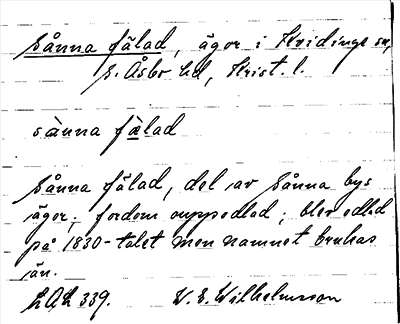 Sånna fälad, ägor i Kvidinge sn,
S. Åsbo hd, Krist. l.
sànna fàlad
Sånna fälad, del av Sånna bys
ägor; fordom ouppodlad; blev odlad
på 1830-talet men namnet brukas
än.
339. W. E. Wilhelmsson